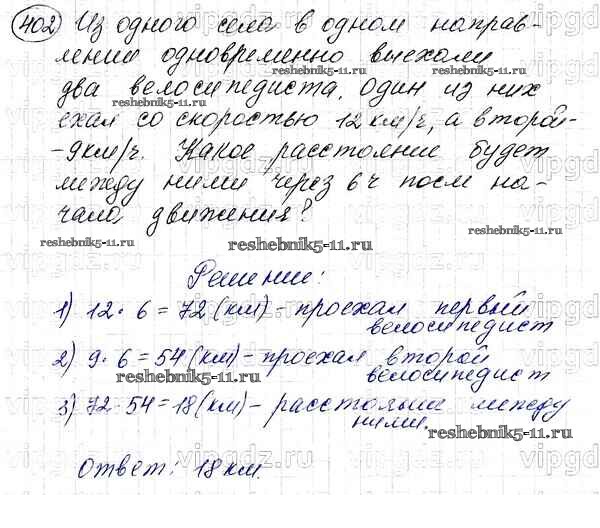 402 Из одного села в одном направ-
лении одновременно выехали
два велосипедиста. Один из них
ехал со скоростью 12 км/ч, а второй-
-9км/ч. Какое расстояние будет
между ними через 6 ч после на-
чала движения?
Решение:
1) 12 · 6 = 72 (км) - проехал первый
велосипедист
2) 9 · 6 = 54 (км) - проехал второй
велосипедист
3) 72 - 54 = 18 (км) - расстояние между
ними.
Ответ: 18 км.
reshebnik5-11.ru
reshebnik5-11.ru
reshebnik5-11.ru
reshebnik5-11.ru
reshebnik5-11.ru
reshebnik5-11.ru